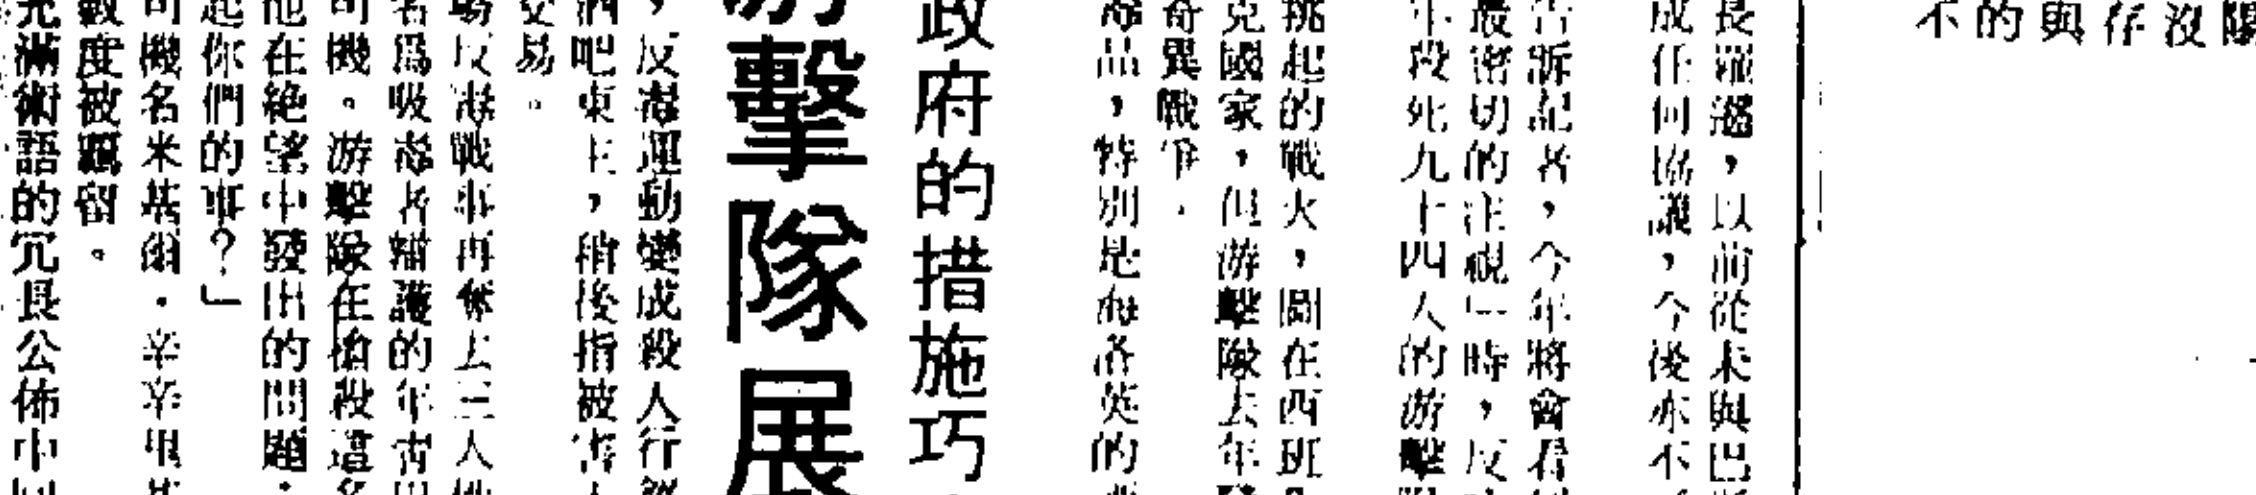 不的與存沒
長羅邀，以前從未與巴
成任何協議，今後亦不
告訴記者，今年將會看
最密切的注視」時，反
年殺死九十四人的游擊
挑起的戰火，關在西班
克國家，但游擊隊去年
奇異戰爭．
毒品，特別是海洛英的
政府的措施巧
游擊隊展
，反毒運動變成殺人行
酒吧東主，稍後指被害
交易。
場反毒戰事再奪去三人
名為吸毒者辯護的年青
司機。游擊隊在槍殺這名
他在絕望中發出的問題：
起你們的事？」
司機名米基爾．辛辛里
數度被羈留。
充滿術語的冗長公佈中